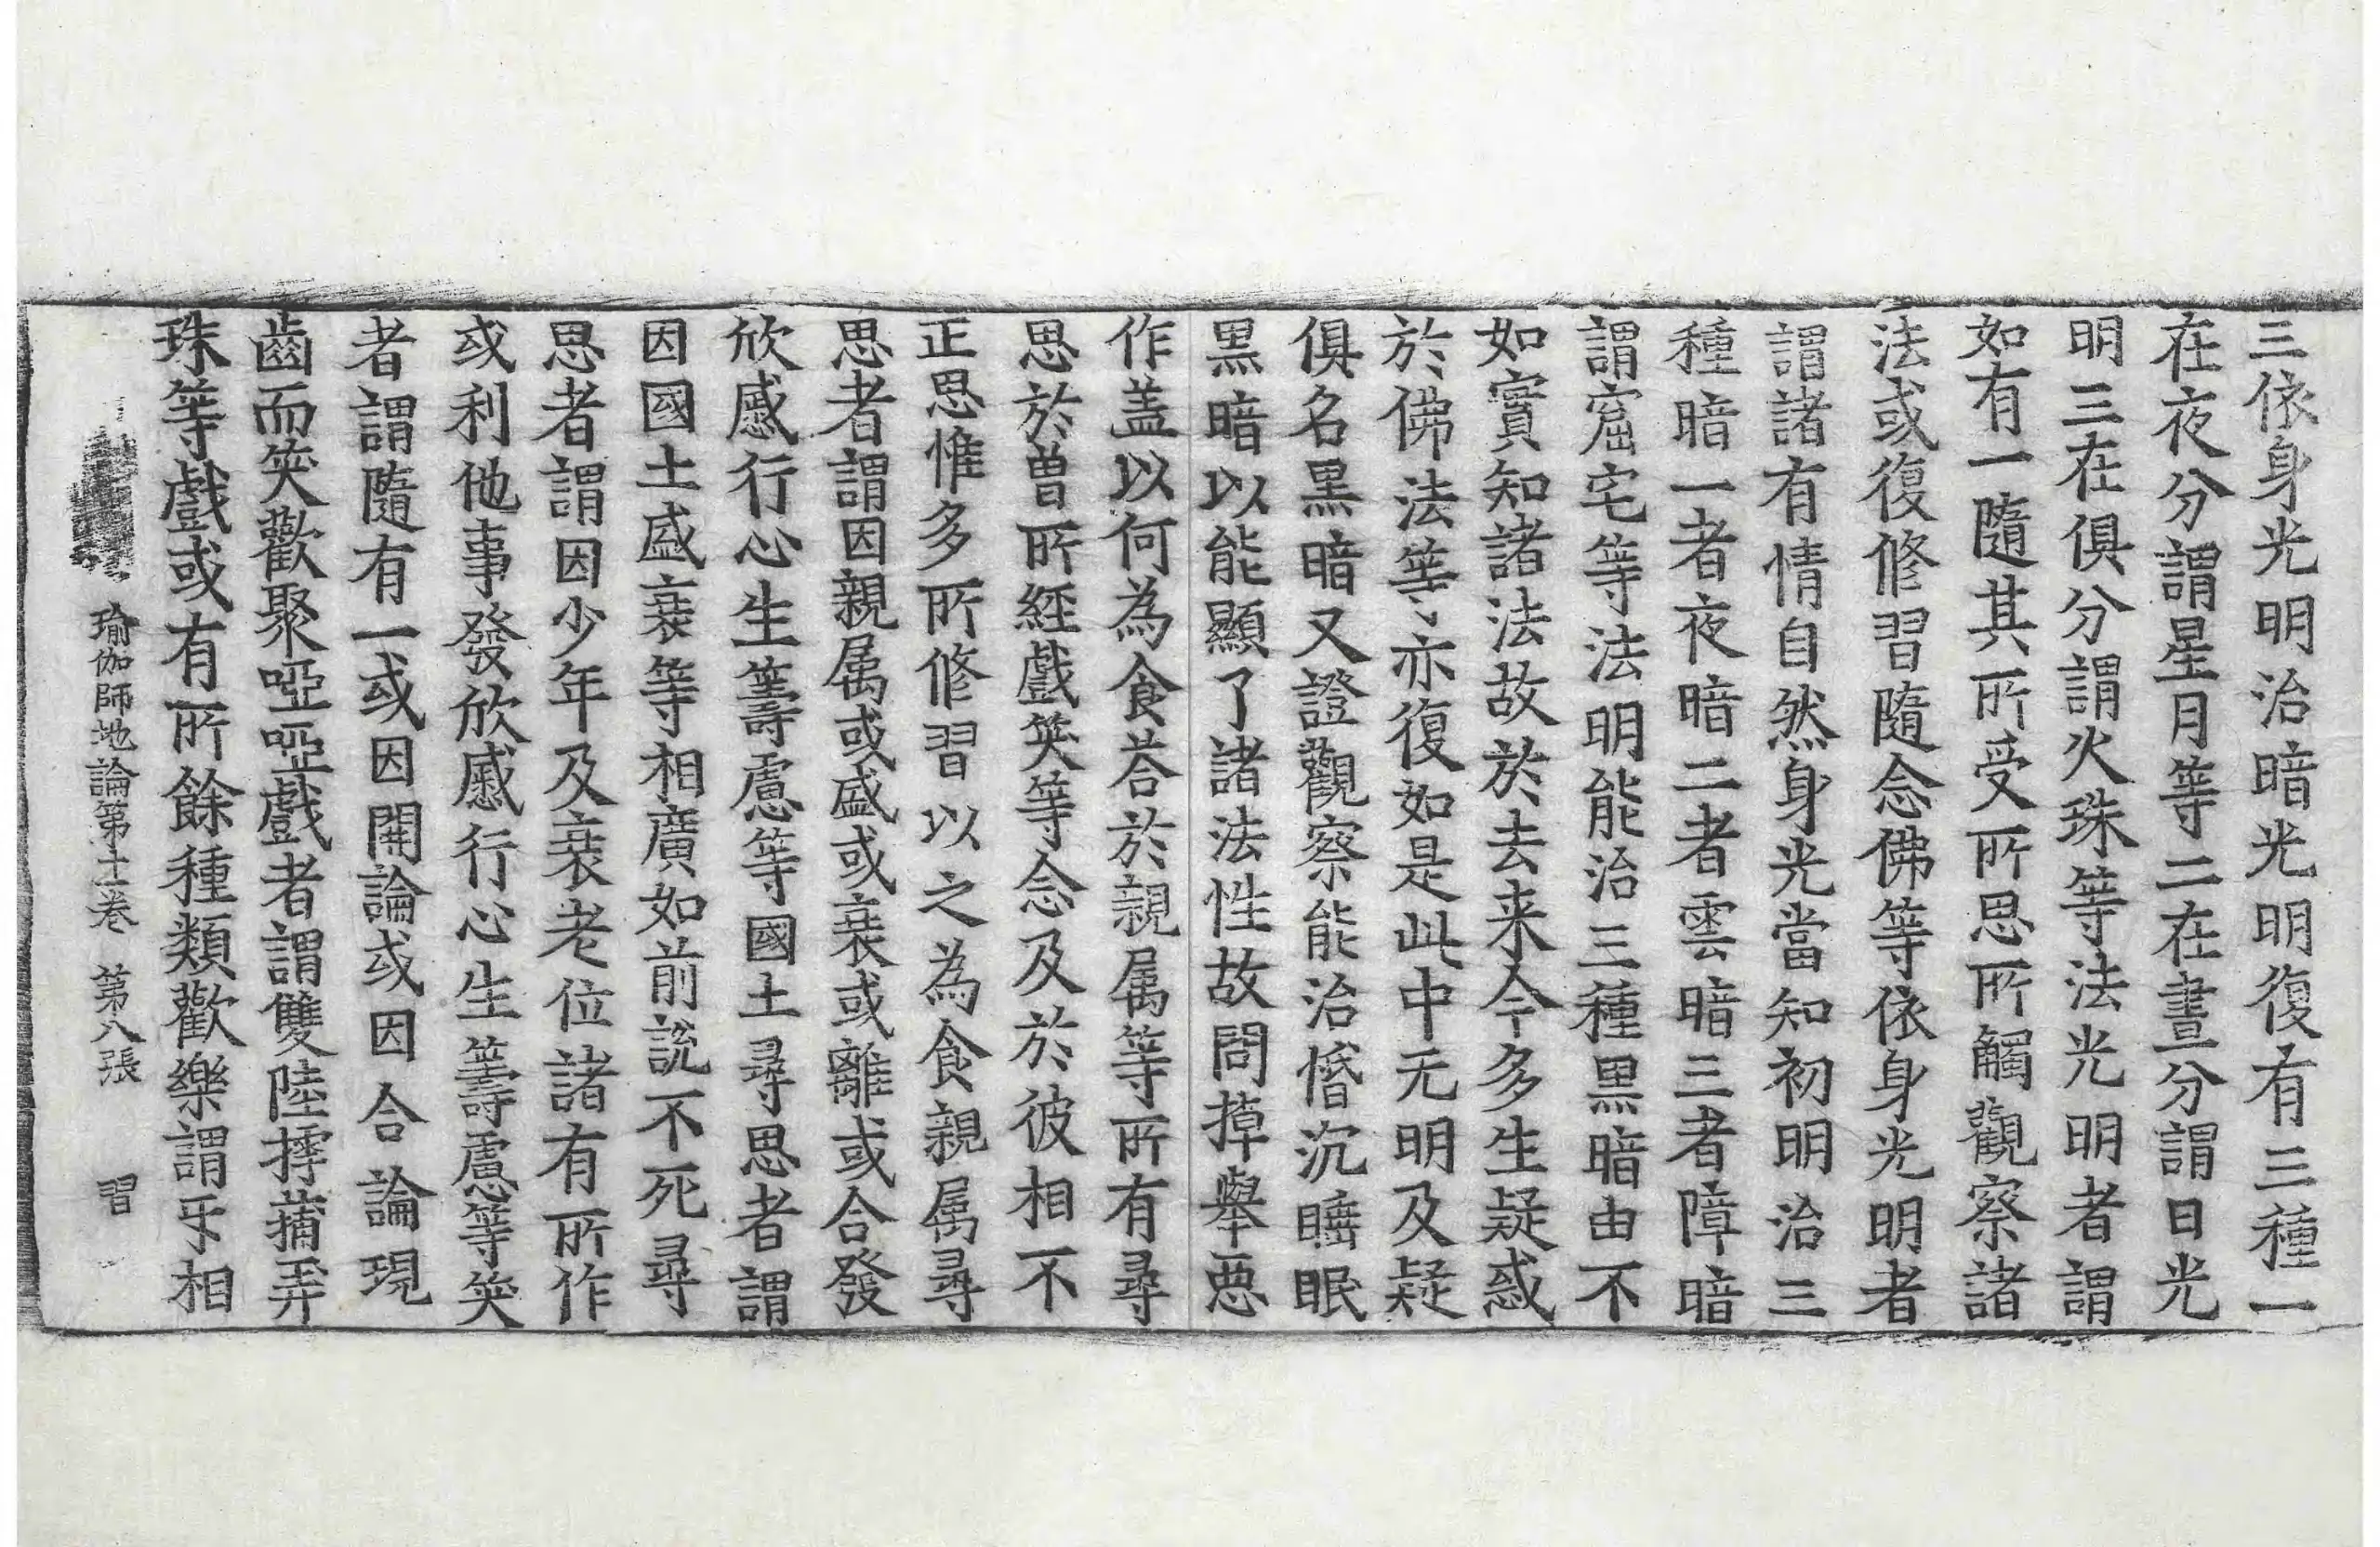 三依身光明治暗光明復有三種一
在夜分謂星月等二在晝分謂日光
明三在俱分謂火珠等法光明者謂
如有一隨其所受所思所觸觀察諸
法或復修習隨念佛等依身光明者
謂諸有情自然身光當知初明治三
種暗一者夜暗二者雲暗三者障暗
謂窟宅等法明能治三種黑暗由不
如實知諸法故於去来今多生疑惑
於佛法等亦復如是此中无明及疑
俱名黑暗又證觀察能治惛沉睡眠
黑暗以能顯了諸法性故問掉舉惡
作盖以何為食荅於親属等所有尋
思於曽所經戲笑等念及於彼相不
正思惟多所修習以之為食親属尋
思者謂因親属或盛或衰或離或合發
欣慼行心生籌慮等國土尋思者謂
因國土盛衰等相廣如前說不死尋
思者謂因少年及衰老位諸有所作
或利他事發欣慼行心生籌慮等笑
者謂隨有一或因開論或因合論現
齒而笑歡聚啞啞戲者謂雙陸摴蒱弄
珠等戲或有所餘種類歡樂謂㸦相
瑜伽師地論第十一卷 第八張 習